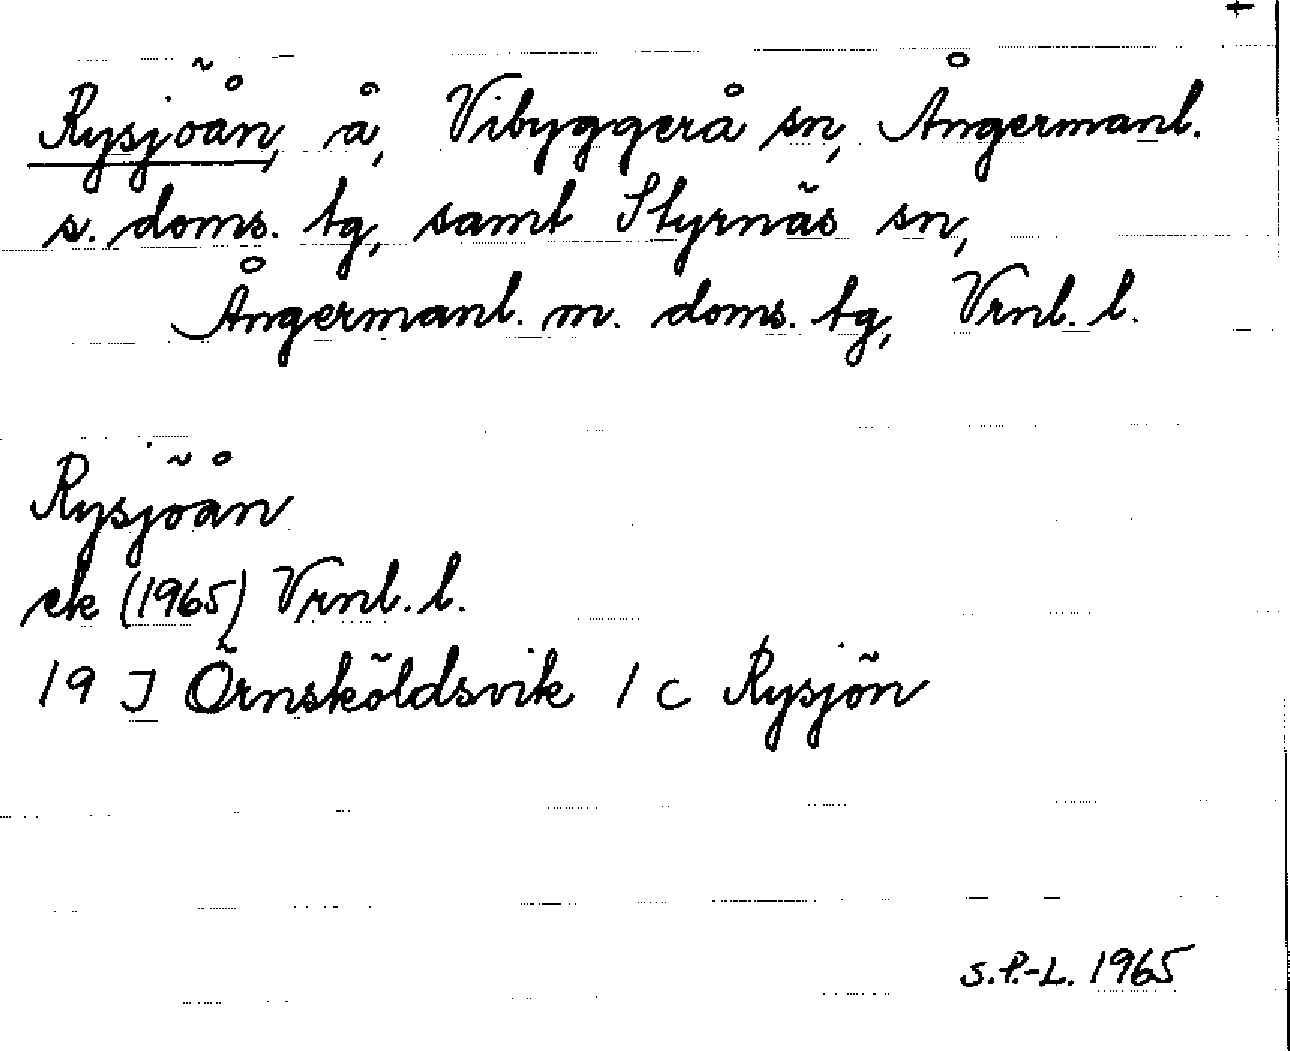 Rysjöån, å, Vibyggerå sn, Ångermanl.
s. doms. tg, samt Styrnäs sn,
Ångermanl. m. doms. tg, Vrnl. l.
Rysjöån
ek (1965) Vrnl. l.
19 J Örnsköldsvik 1 c Rysjön
S.P.-L. 1965